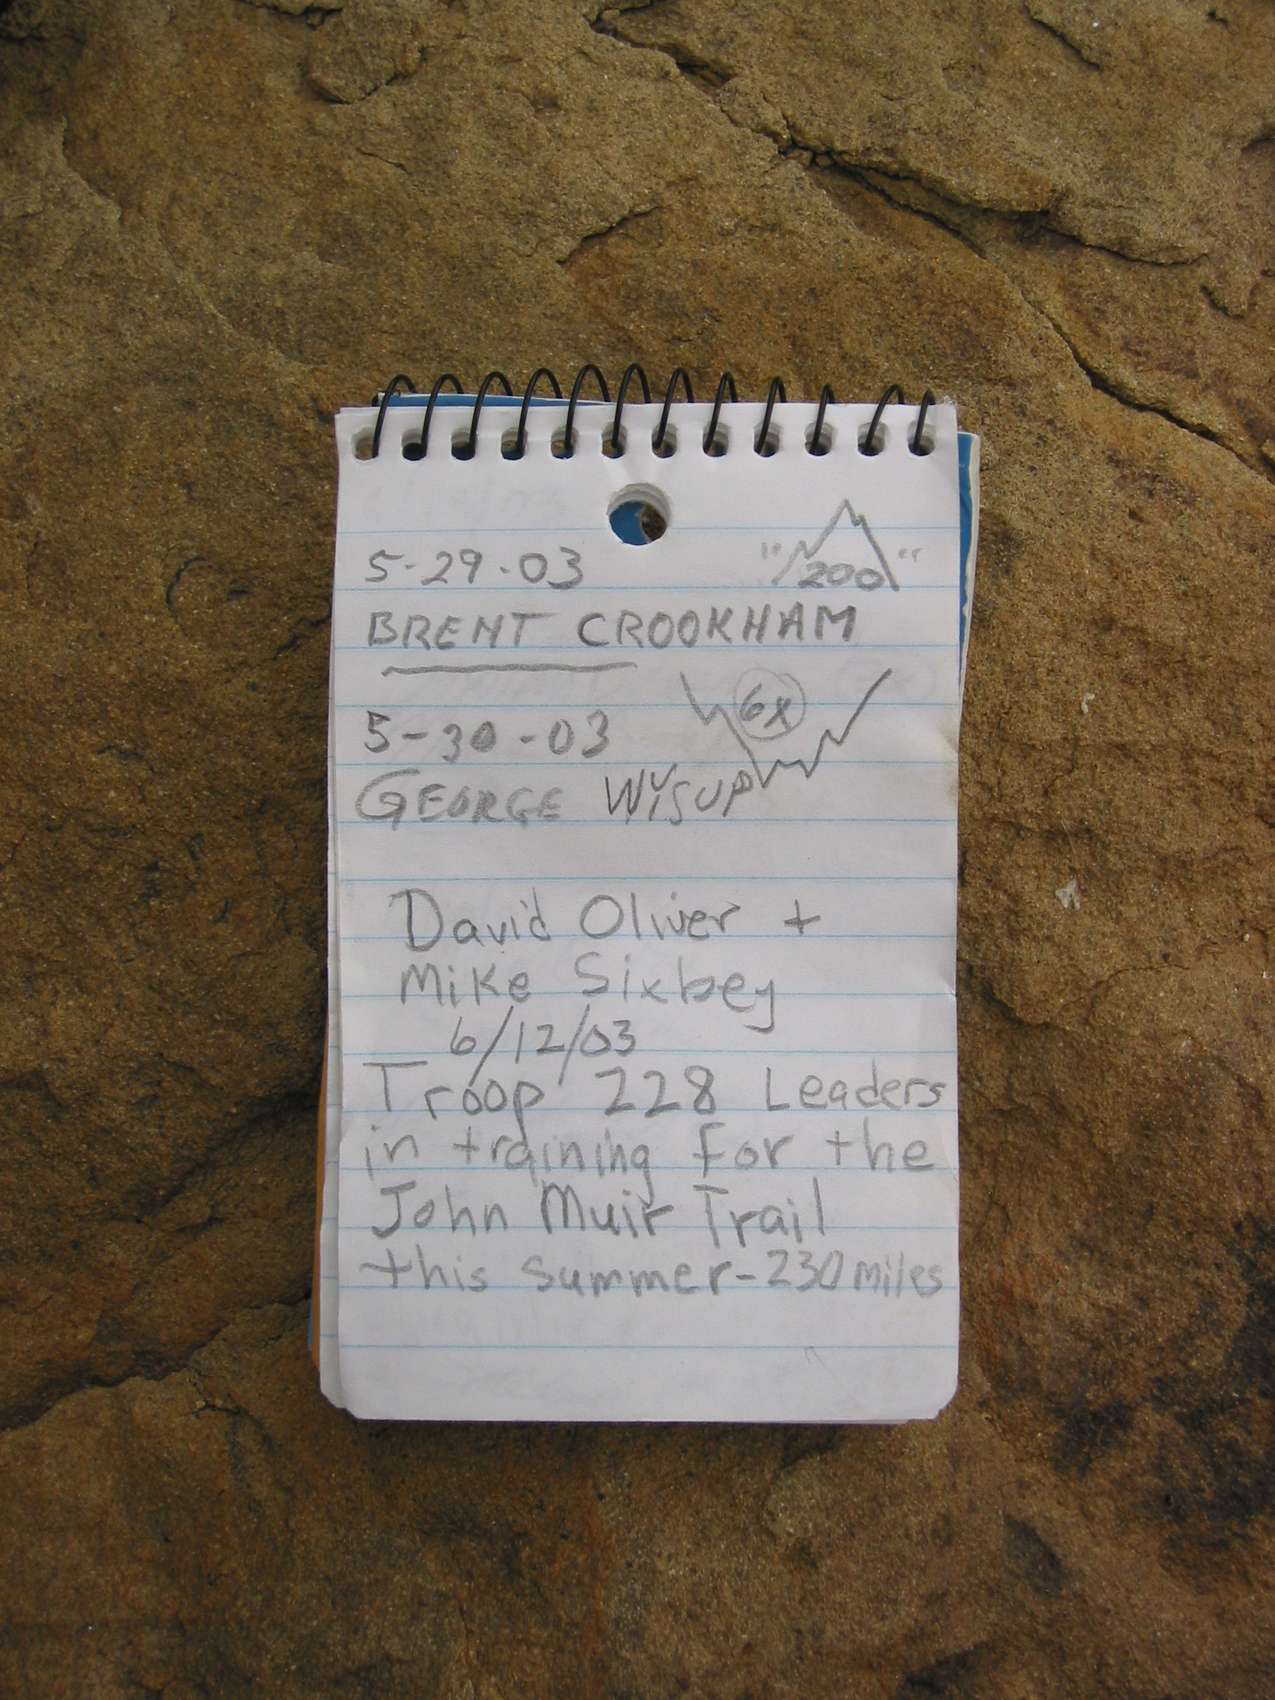 5-29-03 "200"
BRENT CROOKHAM
5-30-03 6x
GEORGE
David Oliver +
Mike Sixbey
6/12/03
Troop 228 Leaders
in training for the
John Muir Trail
this summer-230 miles